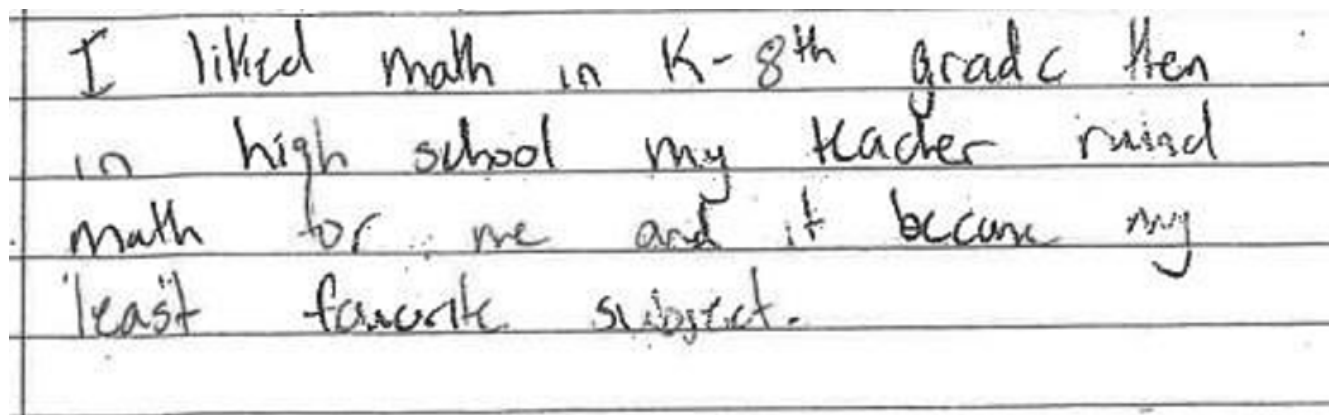 I liked math in K-8th grade then
in high school my teacher ruind
math for me and it became my
least favorite subject.